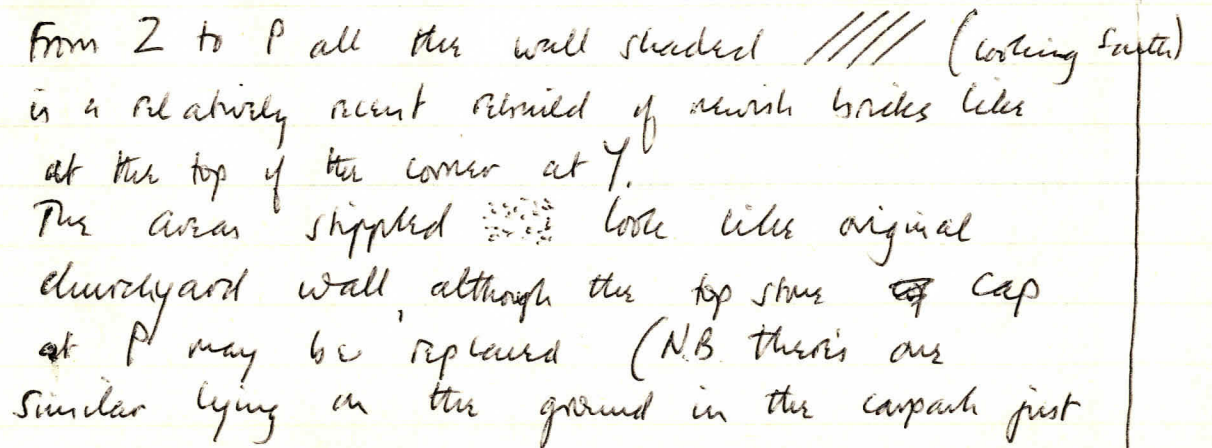 From Z to P all the wall shaded //// (looking South)
is a relatively recent rebuild of newish bricks like
at the top of the corner at Y.
The areas stippled look like original
churchyard wall, although the top stone cap
at P may be replaced (N.B. there's one
similar lying on the ground in the carpark just